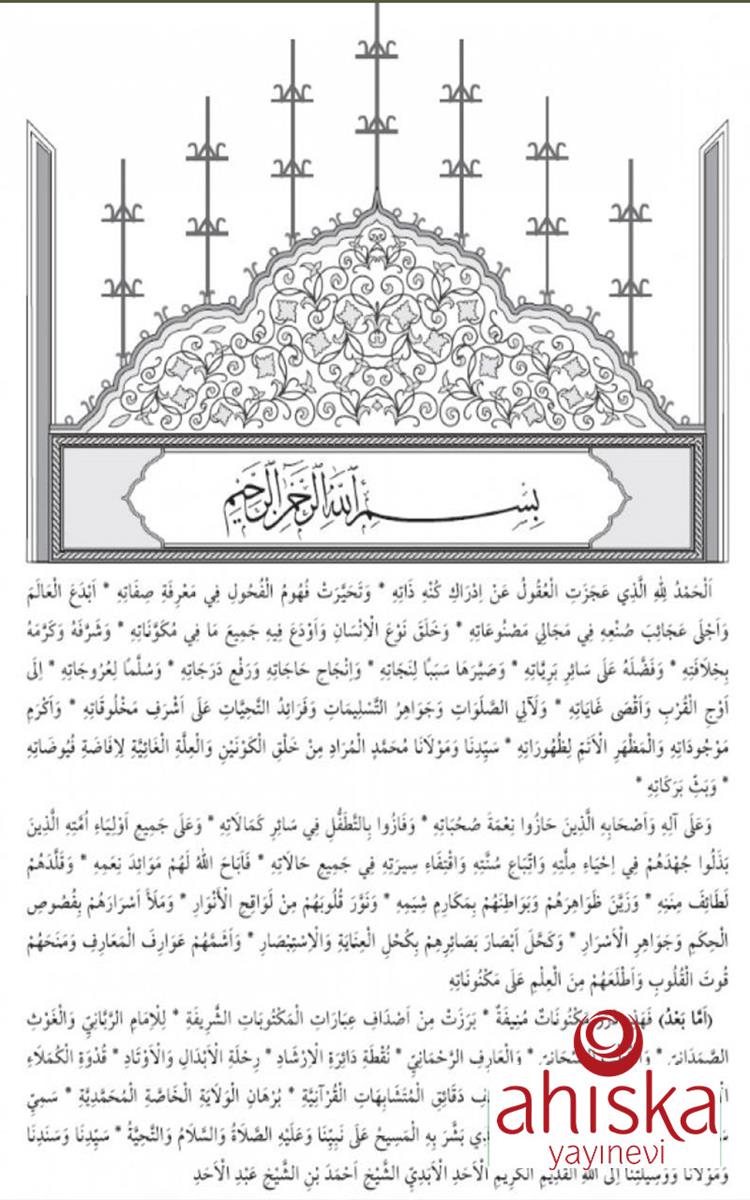 بِسْمِ اللهِ الرَّحْمٰنِ الرَّحِيمِ
اَلْحَمْدُ لِلهِ الَّذِي عَجَزَتِ الْعُقُولُ عَنْ اِدْرَاكِ كُنْهِ ذَاتِهِ * وَتَحَيَّرَتْ فُهُومُ الْفُحُولِ فِي مَعْرِفَةِ صِفَاتِهِ * اَبْدَعَ الْعَالَمَ
وَاَجْلَى عَجَائِبَ صُنْعِهِ فِي مَجَالِي مَصْنُوعَاتِهِ * وَخَلَقَ نَوْعَ الْاِنْسَانِ وَاَوْدَعَ فِيهِ جَمِيعَ مَا فِي مُكَوَّنَاتِهِ * وَشَرَّفَهُ وَكَرَّمَهُ
بِخِلَافَتِهِ * وَفَضَّلَهُ عَلَى سَائِرِ بَرِيَّاتِهِ * وَصَيَّرَهَا سَبَبًا لِنَجَاتِهِ * وَاِنْجَاحِ حَاجَاتِهِ وَرَفْعِ دَرَجَاتِهِ * وَسُلَّمًا لِعُرُوجَاتِهِ * اِلَى
اَوْجِ الْقُرْبِ وَاَقْصَى غَايَاتِهِ * وَلَآلِي الصَّلَوَاتِ وَجَوَاهِرُ التَّسْلِيمَاتِ وَفَرَائِدُ التَّحِيَّاتِ عَلَى اَشْرَفِ مَخْلُوقَاتِهِ * وَاَكْرَمِ
مَوْجُودَاتِهِ وَالْمَظْهَرِ الْاَتَمِّ لِظُهُورَاتِهِ * سَيِّدِنَا وَمَوْلَانَا مُحَمَّدٍ الْمُرَادِ مِنْ خَلْقِ الْكَوْنَيْنِ وَالْعِلَّةِ الْغَائِيَّةِ لِاِفَاضَةِ فُيُوضَاتِهِ
* وَبَثِّ بَرَكَاتِهِ *
وَعَلَى آلِهِ وَاَصْحَابِهِ الَّذِينَ حَازُوا نِعْمَةَ صُحْبَاتِهِ * وَفَازُوا بِالتَّطَفُّلِ فِي سَائِرِ كَمَالَاتِهِ * وَعَلَى جَمِيعِ اَوْلِيَاءِ اُمَّتِهِ الَّذِينَ
بَذَلُوا جُهْدَهُمْ فِي اِحْيَاءِ مِلَّتِهِ وَاتِّبَاعِ سُنَّتِهِ وَاقْتِفَاءِ سِيرَتِهِ فِي جَمِيعِ حَالَاتِهِ * فَاَبَاحَ اللهُ لَهُمْ مَوَائِدَ نِعَمِهِ * وَقَلَّدَهُمْ
لَطَائِفَ مِنَنِهِ * وَزَيَّنَ ظَوَاهِرَهُمْ وَبَوَاطِنَهُمْ بِمَكَارِمِ شِيَمِهِ * وَنَوَّرَ قُلُوبَهُمْ مِنْ لَوَاقِحِ الْأَنْوَارِ * وَمَلَأَ اَسْرَارَهُمْ بِفُصُوصِ
الْحِكَمِ وَجَوَاهِرِ الْاَسْرَارِ * وَكَحَّلَ اَبْصَارَ بَصَائِرِهِمْ بِكُحْلِ الْعِنَايَةِ وَالْاِسْتِبْصَارِ * وَاَشَمَّهُمْ عَوَارِفَ الْمَعَارِفِ وَمَنَحَهُمْ
قُوتَ الْقُلُوبِ وَاَطْلَعَهُمْ مِنَ الْعِلْمِ عَلَى مَكْنُونَاتِهِ
(اَمَّا بَعْدُ) مَكْنُونَاتٌ مُنِيفَةٌ * بَرَزَتْ مِنْ اَصْدَافِ عِبَارَاتِ الْمَكْتُوبَاتِ الشَّرِيفَةِ * لِلْاِمَامِ الرَّبَّانِيِّ وَالْغَوْثِ
الصَّمَدَانِيِّ * وَالْعَارِفِ الرَّحْمَانِيِّ * نُقْطَةِ دَائِرَةِ الْاِرْشَادِ * رِحْلَةِ الْاَبْدَالِ وَالْاَوْتَادِ * قُدْوَةِ الْكُمَلَاءِ
دَقَائِقِ الْمُتَشَابِهَاتِ الْقُرْآنِيَّةِ * بُرْهَانِ الْوِلَايَةِ الْخَاصَّةِ الْمُحَمَّدِيَّةِ * سَمِيِّ
بَشَّرَ بِهِ الْمَسِيحُ عَلَى نَبِيِّنَا وَعَلَيْهِ الصَّلَاةُ وَالسَّلَامُ وَالتَّحِيَّةُ * سَيِّدِنَا وَسَنَدِنَا
وَمَوْلَانَا وَوَسِيلَتِنَا اِلَى اللهِ الْقَدِيمِ الْكَرِيمِ الْاَحَدِ الْاَبَدِيِّ الشَّيْخِ اَحْمَدَ بْنِ الشَّيْخِ عَبْدِ الْاَحَدِ
ahıska
yayınevi